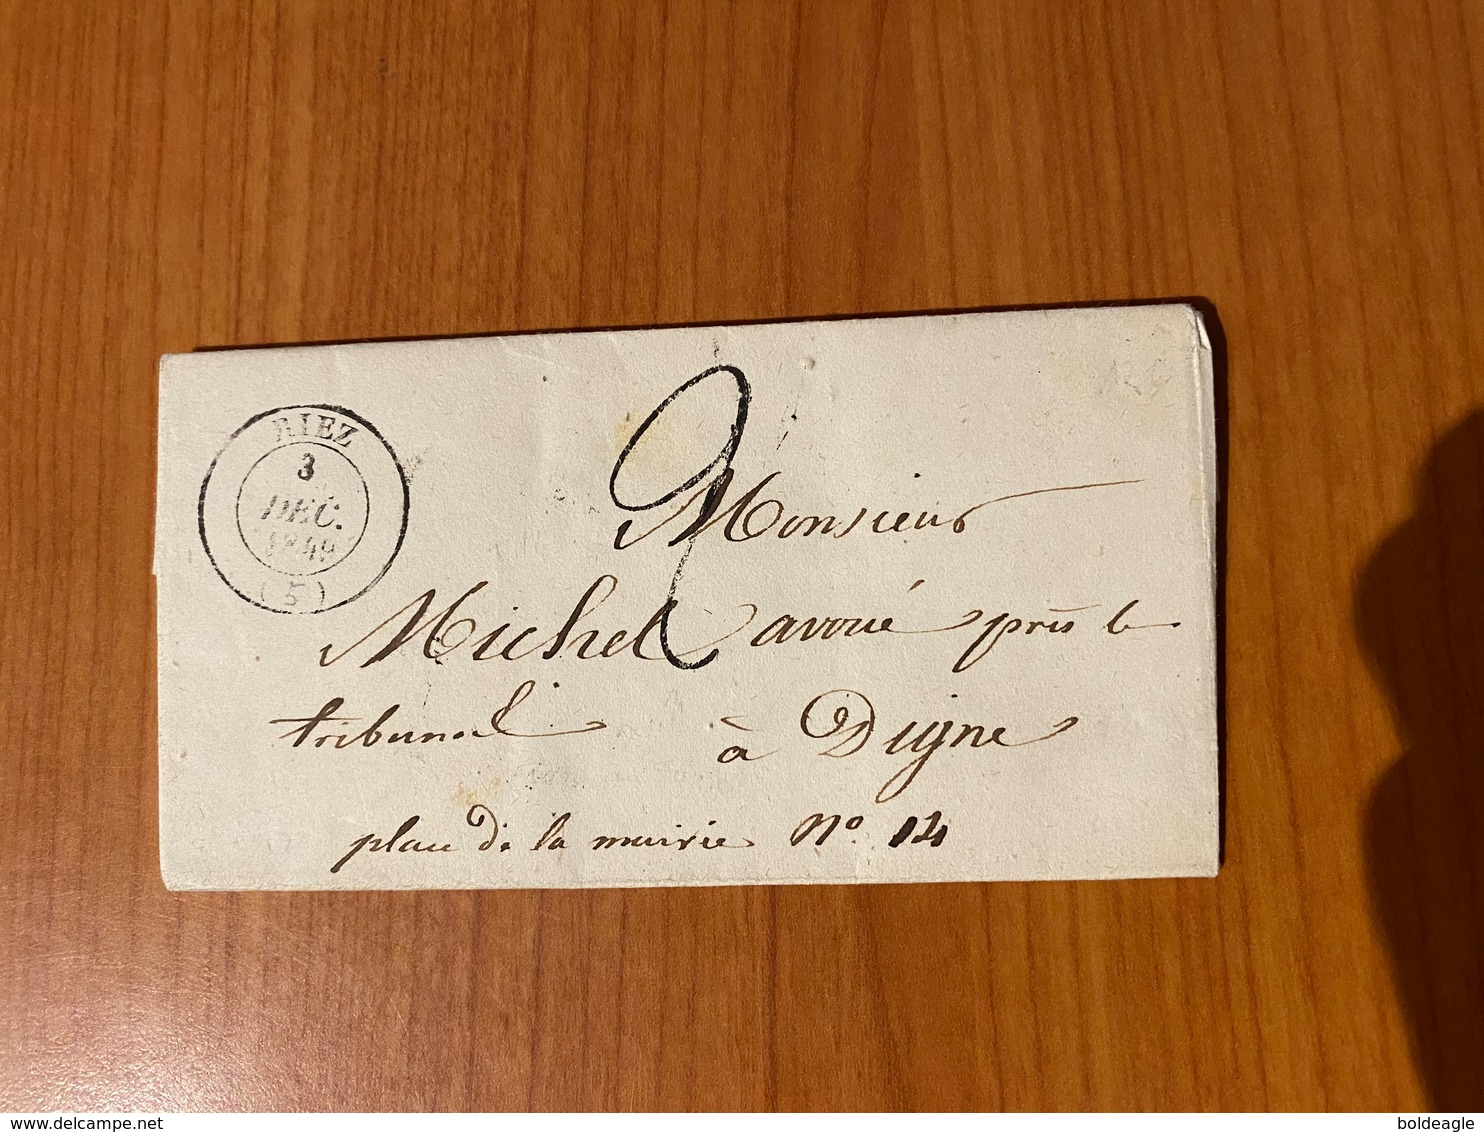 RIEZ
3
DEC.
1849
(5)
2
Monsieur
Michel avoué près le
tribunal
à Digne
place de la mairie N° 14
delcampe.net
boldeagle